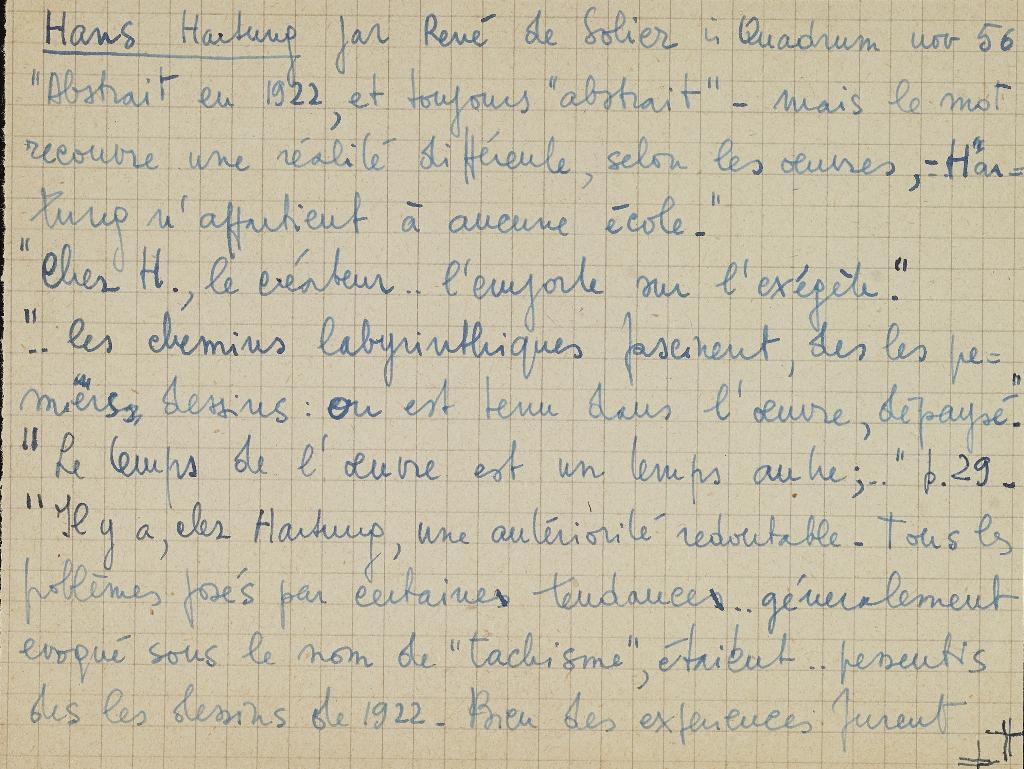 Hans Hartung par René de Solier in Quadrum nov 56
"Abstrait en 1922, et toujours "abstrait" - mais le mot
recouvre une réalité différente, selon les œuvres, - Har=
tung n'appartient à aucune école."
"Chez H., le créateur .. l'emporte sur l'exégète."
".. les chemins labyrinthiques fascinent, dès les pre=
miers dessins : on est tenu dans l'œuvre, dépaysé."
"Le temps de l'œuvre est un temps autre; .." p. 29 -
"Il y a, chez Hartung, une antériorité redoutable - Tous les
problèmes posés par certaines tendances .. généralement
evoqué sous le nom de "tachisme", étaient .. pressentis
dès les dessins de 1922 - Bien des experiences furent